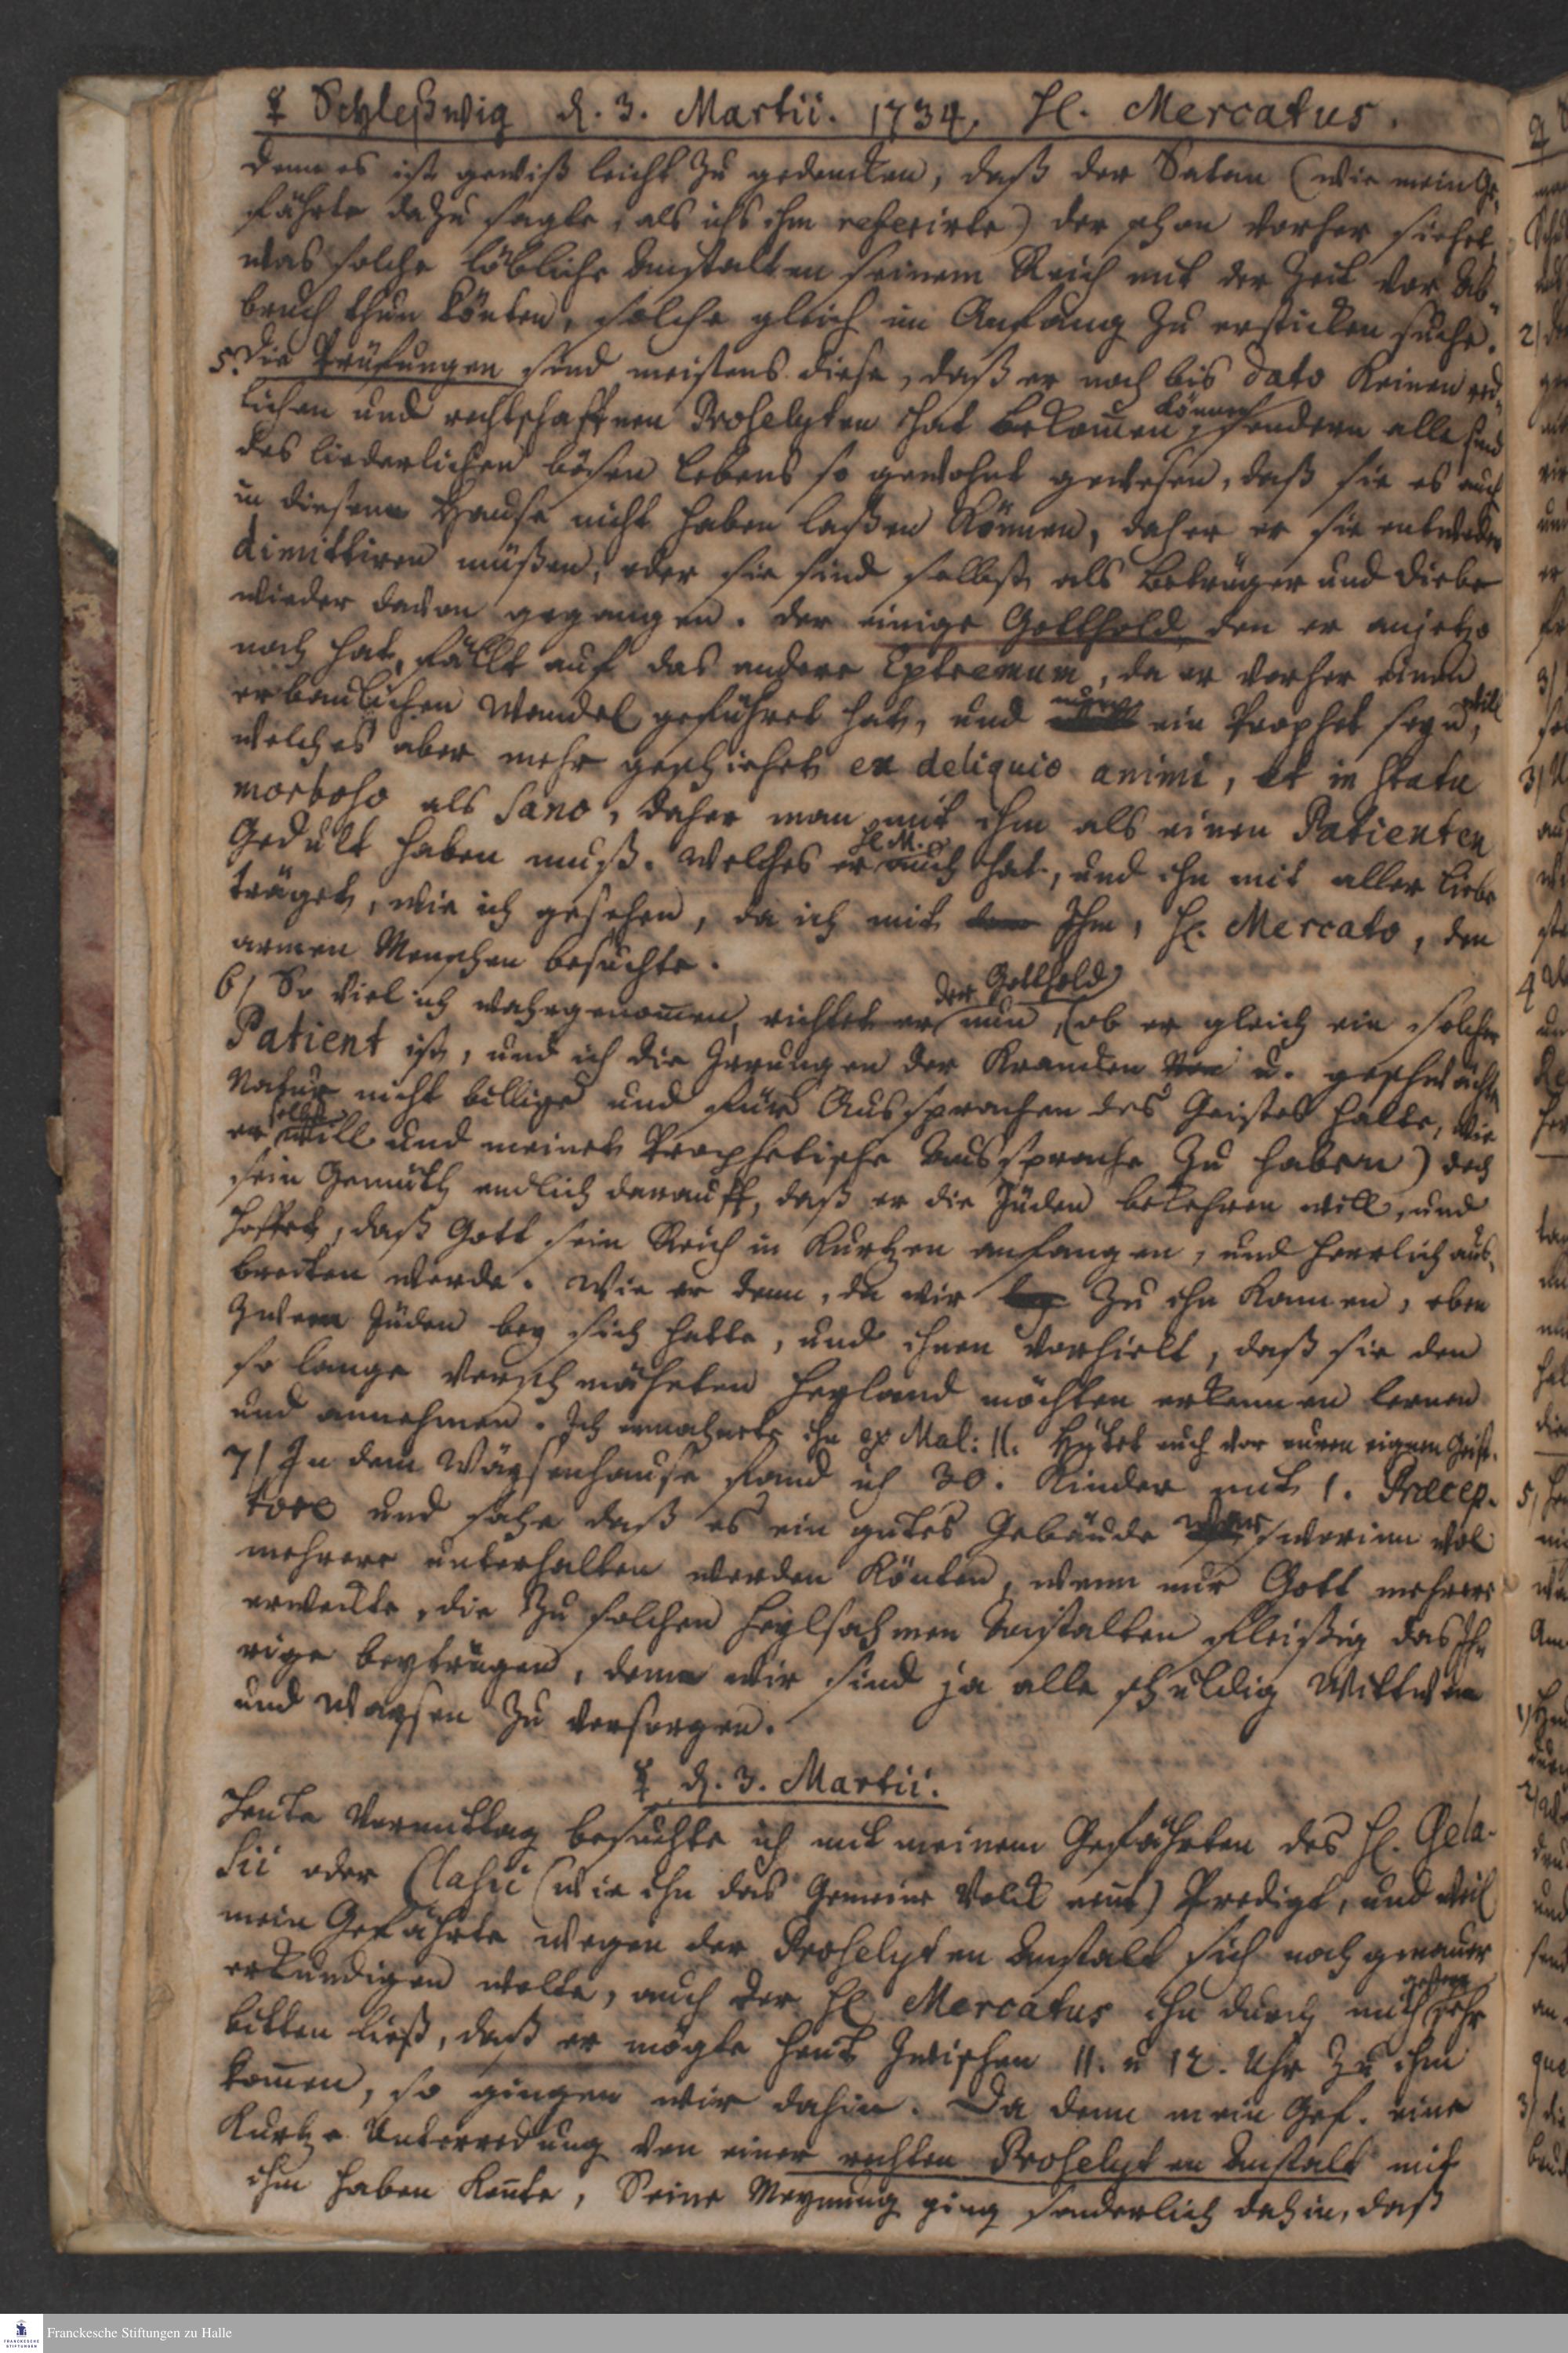 ☿ Schleßwig d. 3. Martii. 1734. H. Mercatus.
denn es ist gewiß leicht zu gedencken, daß der Satan (wie mein Ge-
fährte dazu sagte, als ichs ihm referirte) der schon vorher siehet,
was solche löbliche Anstalten seinem Reich mit der Zeit vor Ab-
bruch thun könten, solche gleich im Anfang zu ersticken suche.
5. Die Prüfungen sind meistens diese, daß er noch bis dato keinen red-
lichen und rechtschaffnen Proselyten hat bekom̅en können, sondern alle sind
des liederlichen bösen Lebens so gewohnt gewesen, daß sie es auch
in diesem Hause nicht haben laßen können, daher er sie entweder
dimittiren müßen, oder sie sind selbst als Betrüger und Diebe
wieder davon gegangen. Der einige Gotthold, den er anjetzo
noch hat, fällt auf das andere Extremum, da er vorher einen
erbaulichen Wandel geführet hat, und nun ein Prophet seyn will,
welches aber mehr geschiehet ex deliquio animi, et in statu
morboso als sano, daher man mit ihm als einen Patienten
Gedult haben muß. Welches er H. M. auch hat, und ihn mit aller Liebe
träget, wie ich gesehen, da ich mit Ihm, H. Mercato, den
armen Menschen besuchte.
6) So viel ich wahrgenom̅en, richtet er der Gotthold nun, (ob er gleich ein solcher
Patient ist, und ich die Irrungen der Krancken u. geschwächten
Natur nicht billige und für Aussprachen des Geistes halte, wie
er selbst will und meinet Prophetische Aussprache zu haben) doch
sein Gemüth endlich darauff, daß er die Jüden bekehren will, und
hoffet, daß Gott sein Reich in Kurtzen anfangen, und herrlich aus-
breiten werde. Wie er denn, da wir zu ihn kamen, eben
zween Jüden bey sich hatte, und ihnen vorhielt, daß sie den
so lange verschmäheten Heyland möchten erkennen lernen
und annehmen. Ich ermahnete ihn ex Mal: II. Hütet euch vor euren eignen Geist.
7) In dem Wäysenhause fand ich 30. Kinder mit 1. Præcep-
tore und sahe daß es ein gutes Gebäude war, worinn wol
mehrere unterhalten werden könten, wenn nur Gott mehrere
erweckte, die zu solchen heylsahmen Anstalten fleißig das Ih-
rige beytrügen, denn wir sind ja alle schuldig Wittwen
und Waysen zu versorgen.
☿ d. 3. Martii.
Heute Vormittag besuchte ich mit meinem Gefährten des H. Gela-
sii oder Clasii (wie ihn das Gemeine Volck nent) Predigt, und weil
mein Gefährte wegen der Proselyten Anstalt sich noch genauer
erkundigen wolte, auch der H. Mercatus ihn durch mich gestern sehr
bitten ließ, daß er mögte heute zwischen 11. u 12. Uhr zu ihm
kom̅en, so gingen wir dahin. Da denn mein Gef. eine
Kurtze Unterredung von einer rechten Proselyten Anstalt mit
ihm haben konte, Seine Meynung ging sonderlich dahin, daß
Franckesche Stiftungen zu Halle